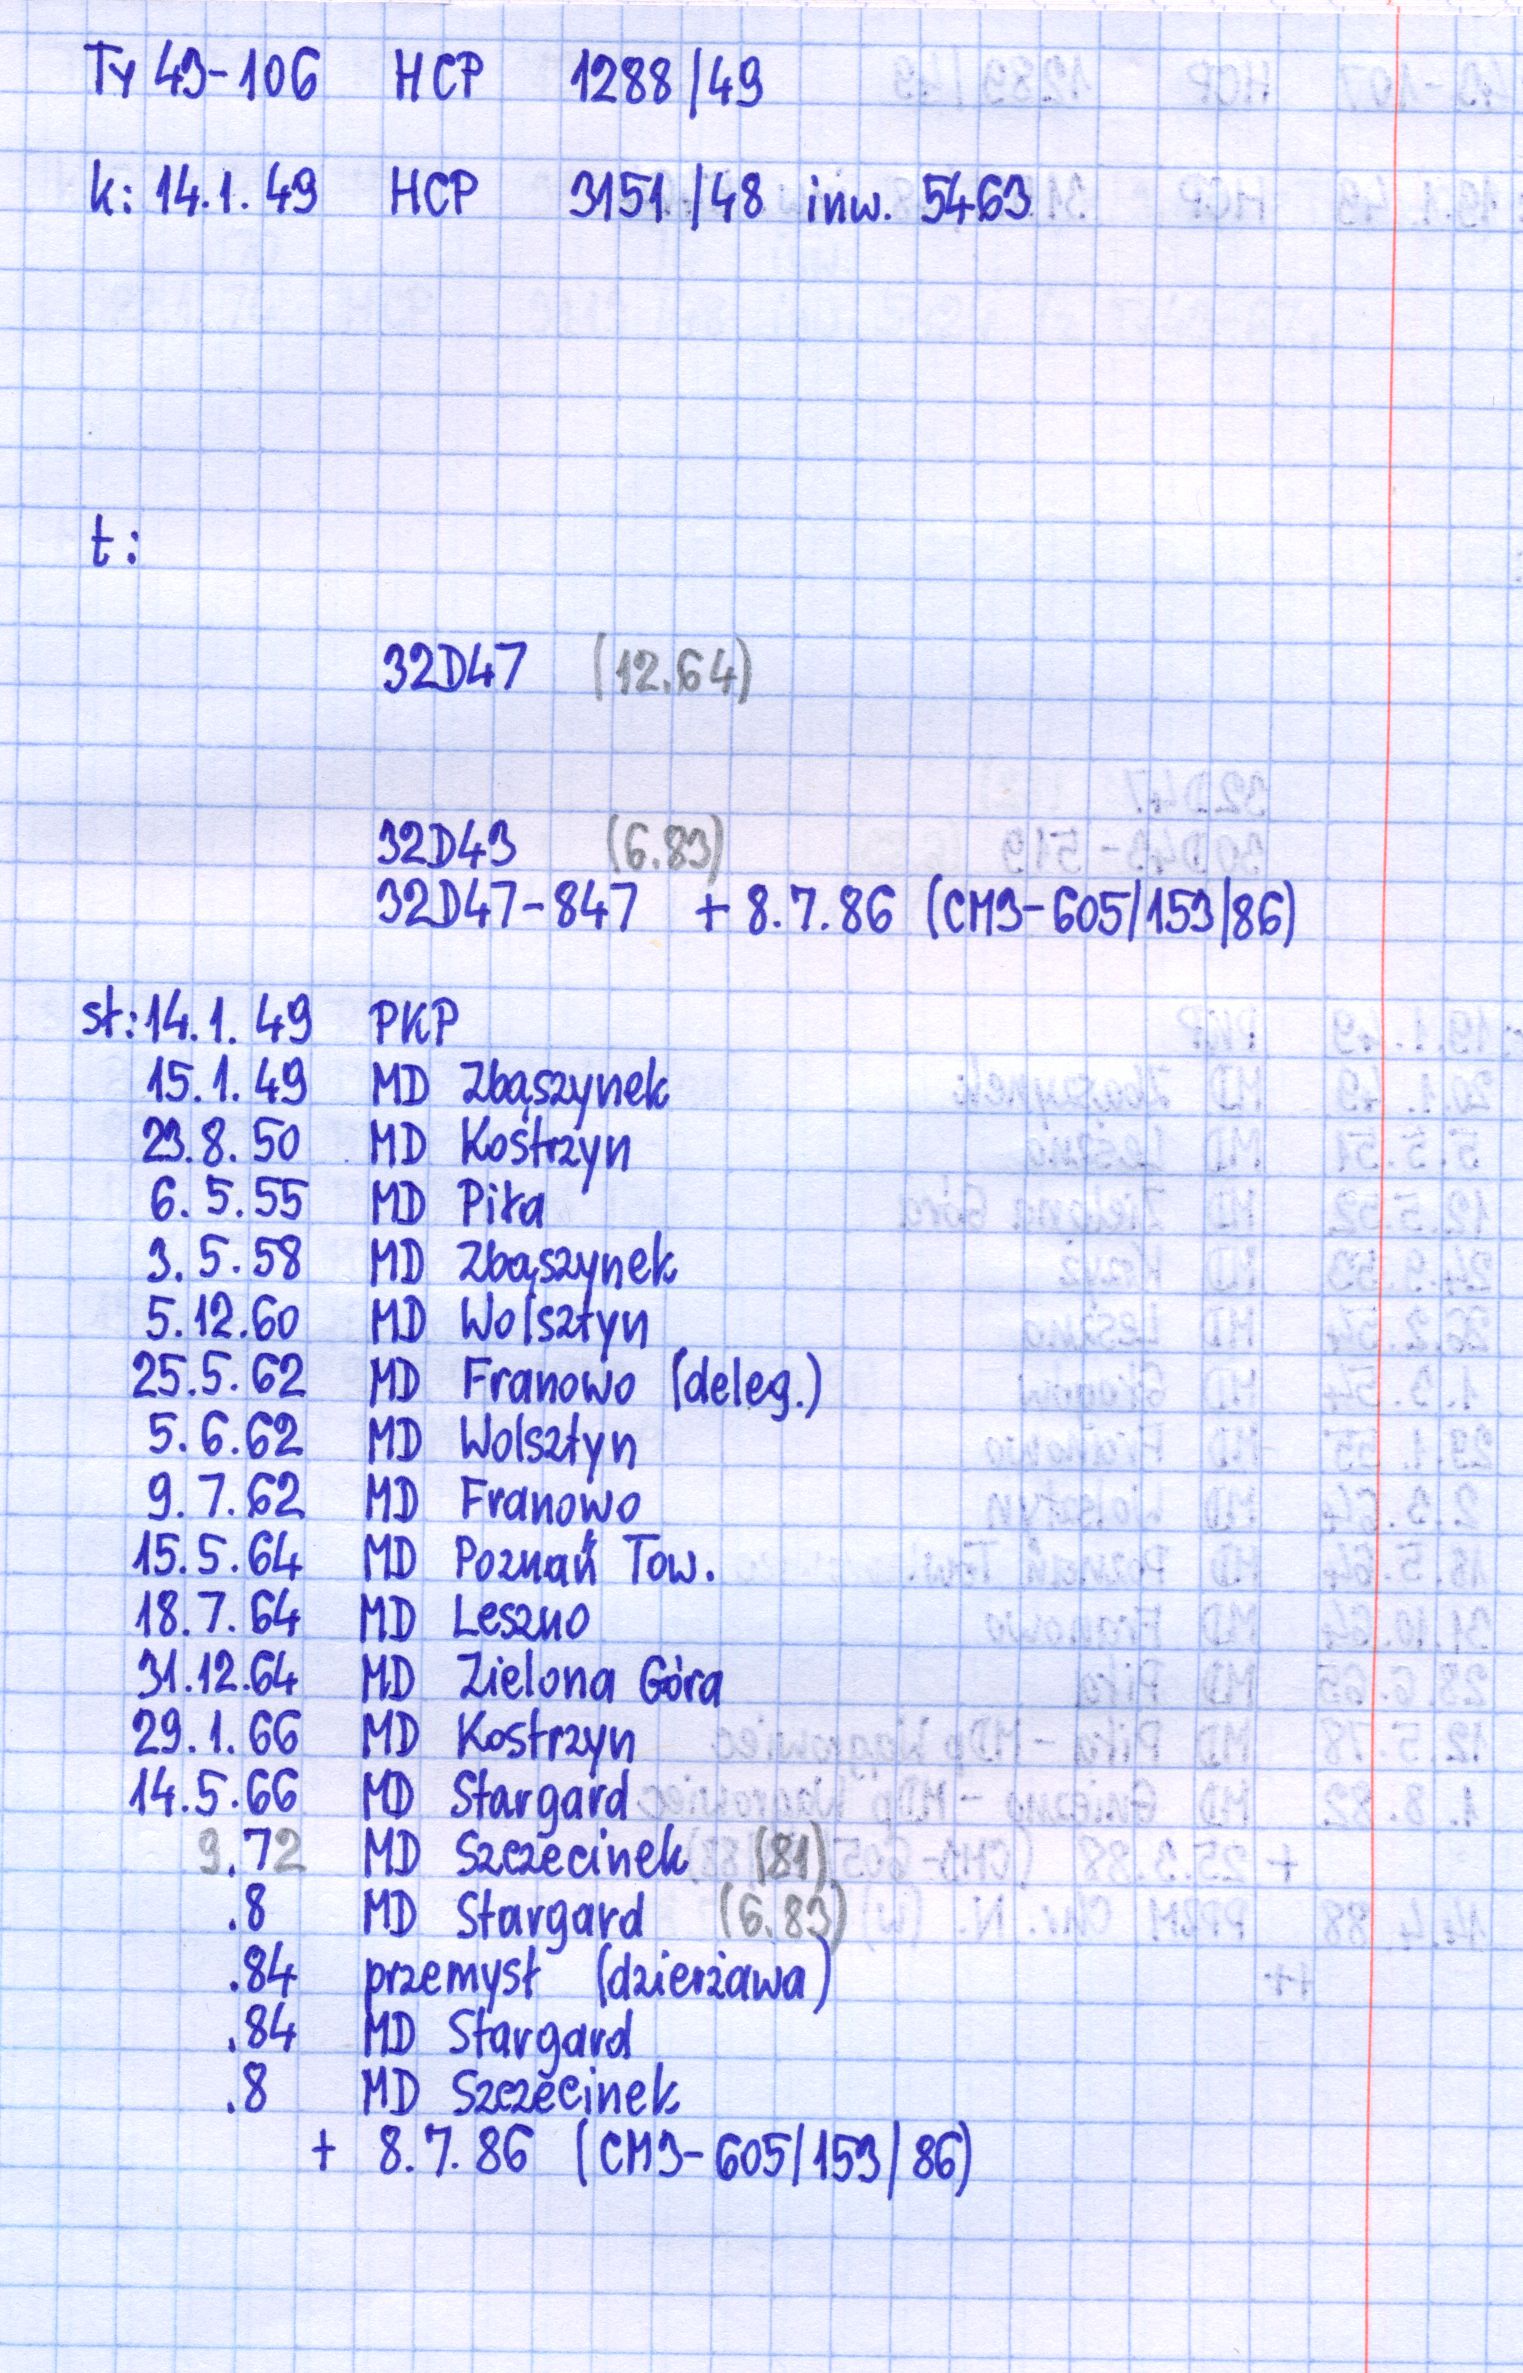 Ty 43-106 HCP 1288/49
k: 14.1.49 HCP 3151/48 inw. 5463
t:
32D47 (12.64)
32D43 (6.83)
32D47-847 + 8.7.86 (CM3-605/153/86)
st: 14.1.49 PKP
15.1.49 MD Zbąszynek
23.8.50 MD Kostrzyn
6.5.55 MD Piła
3.5.58 MD Zbąszynek
5.12.60 MD Wolsztyn
25.5.62 MD Franowo (deleg.)
5.6.62 MD Wolsztyn
9.7.62 MD Franowo
15.5.64 MD Poznań Tow.
18.7.64 MD Leszno
31.12.64 MD Zielona Góra
29.1.66 MD Kostrzyn
14.5.66 MD Stargard
9.72 MD Szczecinek (81)
.8 MD Stargard (6.83)
.84 przemysł (dzierżawa)
.84 MD Stargard
.8 MD Szczecinek
+ 8.7.86 (CM3-605/153/86)